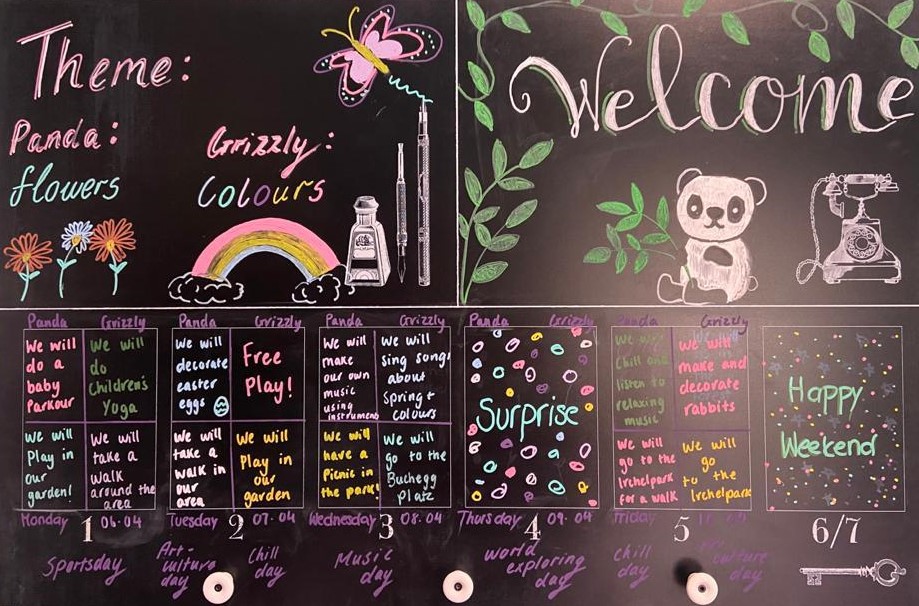 Theme:
Panda:
flowers
Grizzly:
Colours
Welcome
Panda Grizzly
We will
do a
baby
Parkour
We will
do
Children's
Yoga
We will
Play in
our
garden!
We will
take a
walk
around the
area
Monday 1 06.04
Sportsday
Panda Grizzly
We will
decorate
easter
eggs
Free
Play!
We will
take a
walk in
our
area
We will
Play in
our
garden
Tuesday 2 07.04
Art-
culture
day
Chill
day
Panda Grizzly
We will
make
our own
music
using
instruments
We will
sing songs
about
Spring +
colours
We will
have a
Picnic in
the park!
We will
go to the
Buchegg
Platz
Wednesday 3 08.04
Music
day
Panda Grizzly
Surprise
Thursday 4 09.04
world
exploring
day
Panda Grizzly
We will
Chill and
listen to
relaxing
music
We will
make and
decorate
rabbits
We will
go to the
Irchelpark
for a walk
We will
go
to the
Irchelpark
Friday 5
Chill
day
culture
day
Happy
Weekend
6/7